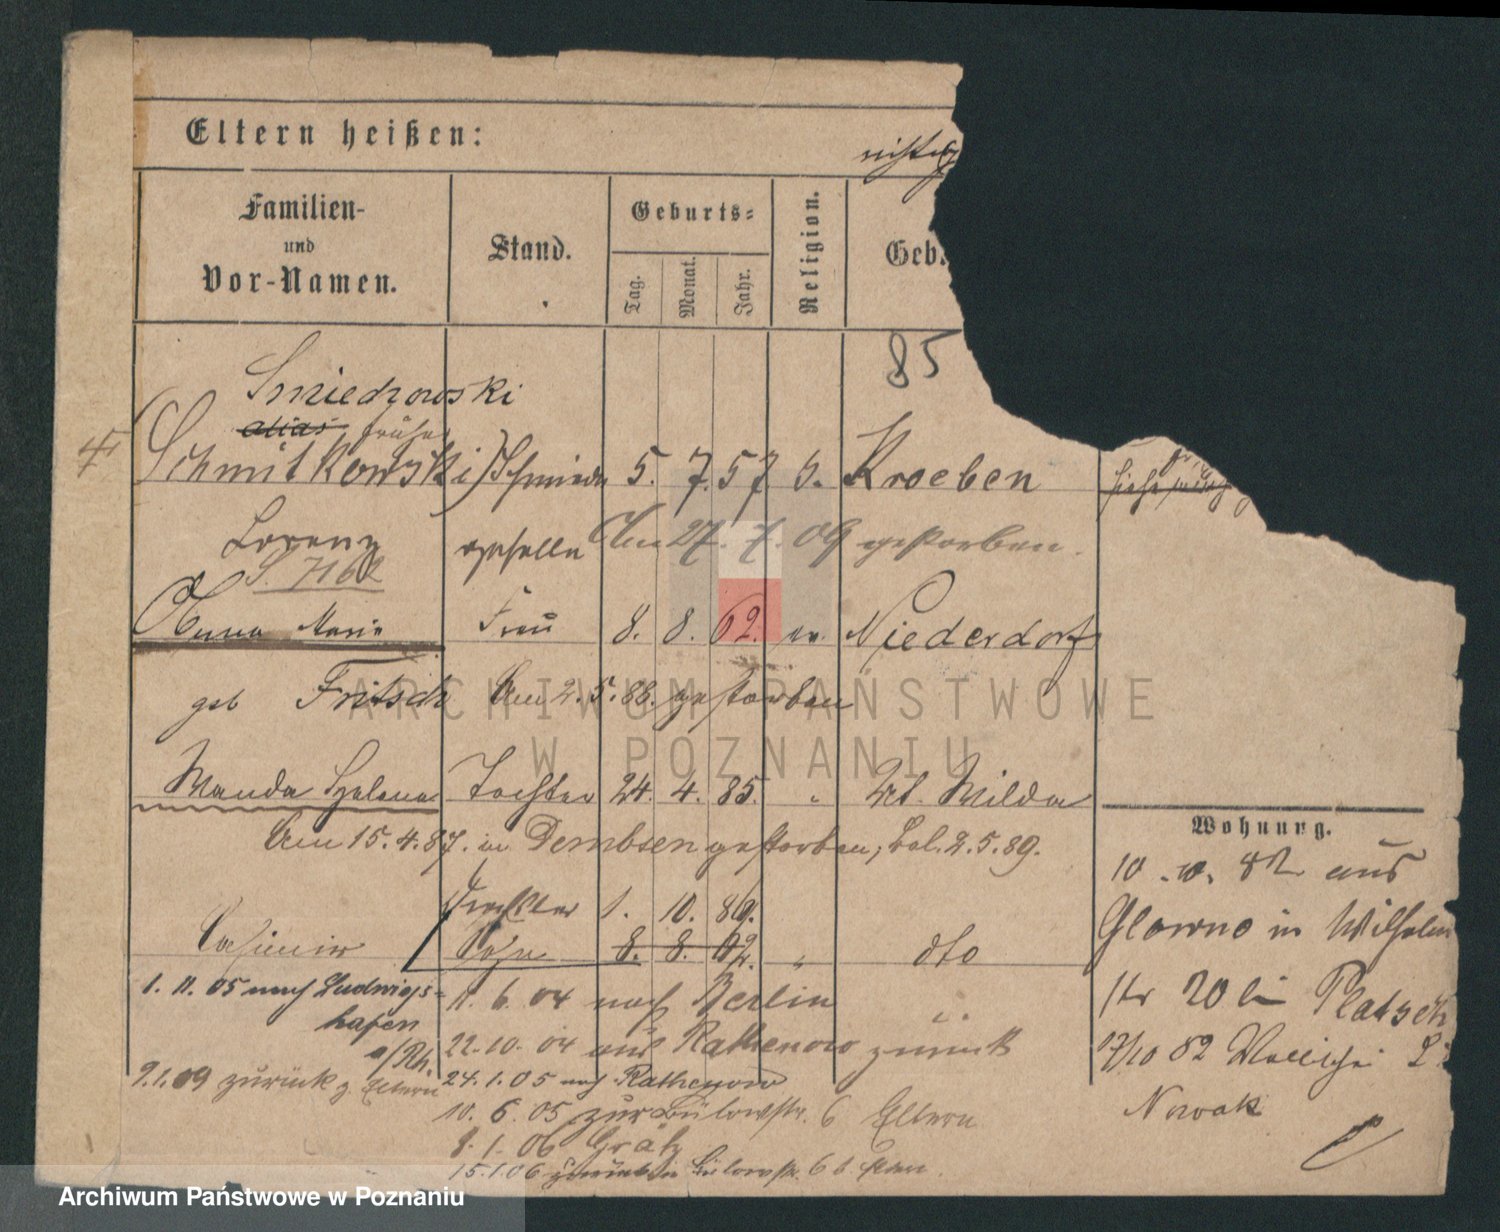 Eltern heißen:
Familien-
und
Vor-Namen.
Stand.
Geburts-
Tag.
Monat.
Jahr.
Religion.
Geb.
85
Smiedzowski
alias früher
(Schmitkowski) Schmiede 5. 7. 57 k. Kroeben
Lorenz geselle Am 27. 7. 09 gestorben.
S. 716
Anna Marie Frau 8. 8. 62. ev. Niederdorf
geb Fritsch Am 2. 5. 88. gestorben
Wanda Helena Tochter 24. 4. 85. " St. Wilda
Am 15. 4. 87. in Dembsen gestorben, 2. 5. 89.
1. 10. 89.
Casimir Sohn 8. 8. 92. " dto
1. 11. 05 nach Ludwigs-
hafen
a/Rh.
9.1.09 zurück z. Eltern
11. 6. 04 nach Berlin
22. 10. 04 aus Rathenow zurück
24. 1. 05 nach Rathenow
10. 6. 05 zur Bülowstr. 6 Eltern
8. 1. 06 Grätz
15.1.06 zurück Bülowstr. 6 b.
Wohnung.
10. 10. 82 aus
Glowno in Wilhelm
str 20 bei Platsch
17/10 82
Nowak
ARCHIWUM PAŃSTWOWE
W POZNANIU
Archiwum Państwowe w Poznaniu